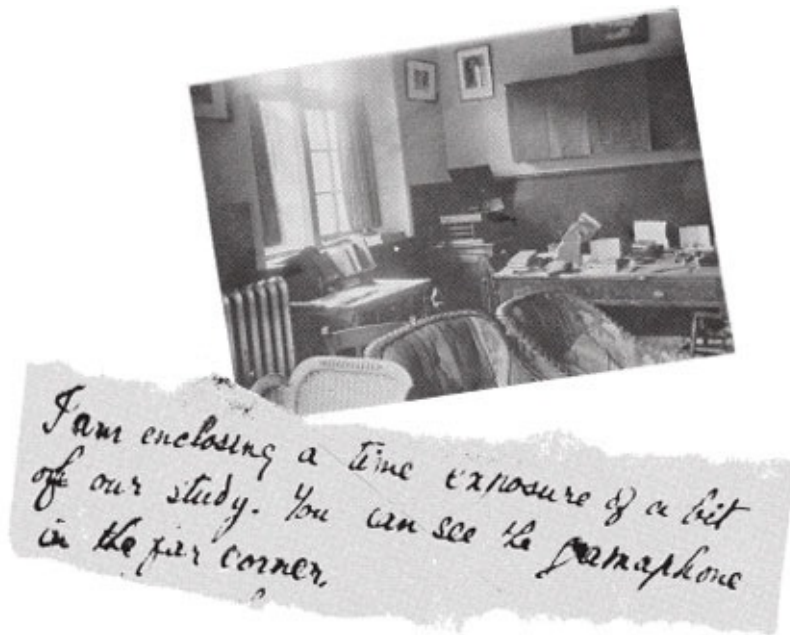 I am enclosing a time exposure of a bit
of our study. You can see the gamaphone
in the far corner.